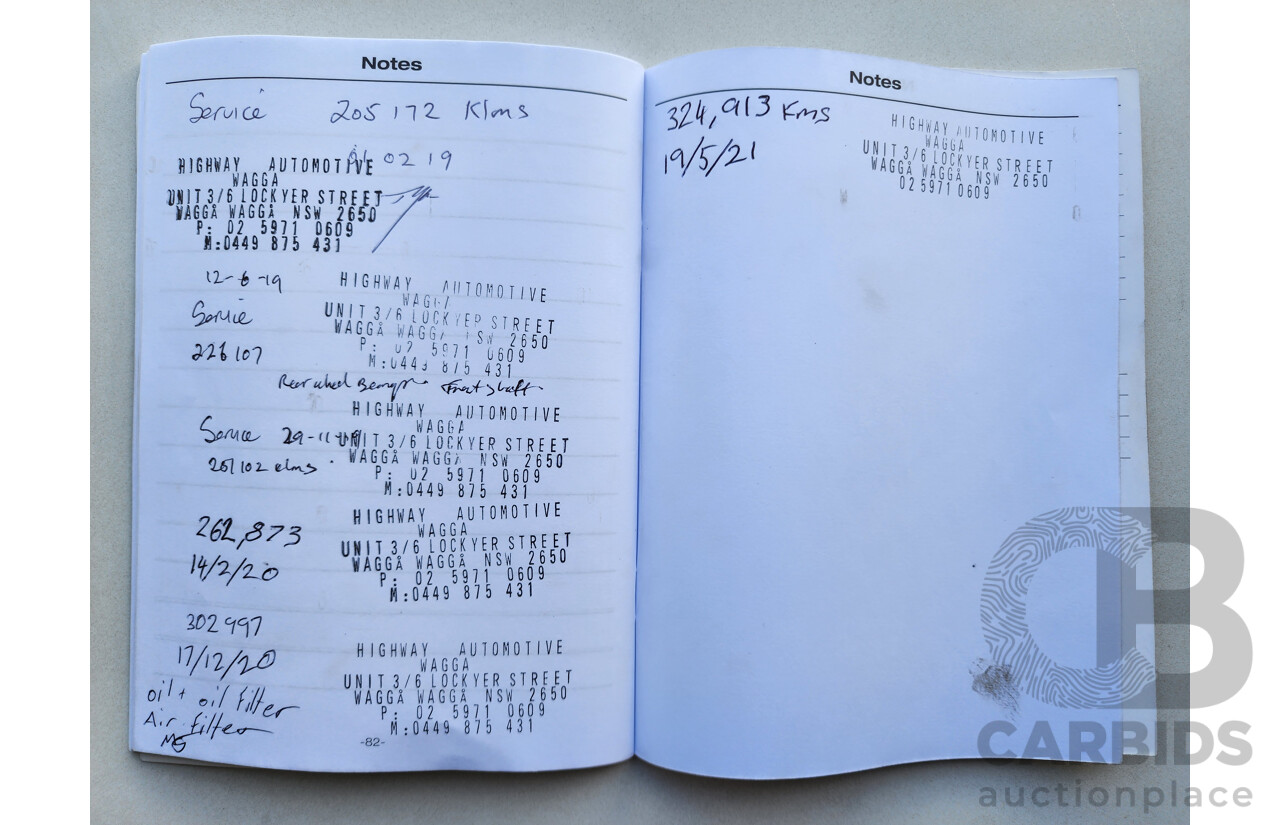 Notes
Service 205 172 Klms
01 02 19
HIGHWAY AUTOMOTIVE
WAGGA
UNIT 3/6 LOCKYER STREET
WAGGÅ WAGGÅ NSW 2650
P: 02 5971 0609
M:0449 875 431
12-6-19
Service
226107
HIGHWAY AUTOMOTIVE
WAGGA
UNIT 3/6 LOCKYER STREET
WAGGÅ WAGGA NSW 2650
P: 02 5971 0609
M:0449 875 431
Rear wheel Front shaft
Service 29-11-19
klms
HIGHWAY AUTOMOTIVE
WAGGA
UNIT 3/6 LOCKYER STREET
WAGGÅ WAGGA NSW 2650
P: 02 5971 0609
M:0449 875 431
262,873
14/2/20
HIGHWAY AUTOMOTIVE
WAGGA
UNIT 3/6 LOCKYER STREET
WAGGÅ WAGGÅ NSW 2650
P: 02 5971 0609
M:0449 875 431
302997
17/12/20
oil + oil Filter
Air filter
MS
HIGHWAY AUTOMOTIVE
WAGGA
UNIT 3/6 LOCKYER STREET
WAGGÅ WAGGÅ NSW 2650
P: 02 5971 0609
M:0449 875 431
-82-
Notes
324,913 Kms
19/5/21
HIGHWAY AUTOMOTIVE
WAGGA
UNIT 3/6 LOCKYER STREET
WAGGA WAGGA NSW 2650
02 5971 0609
CB
CARBIDS
auctionplace